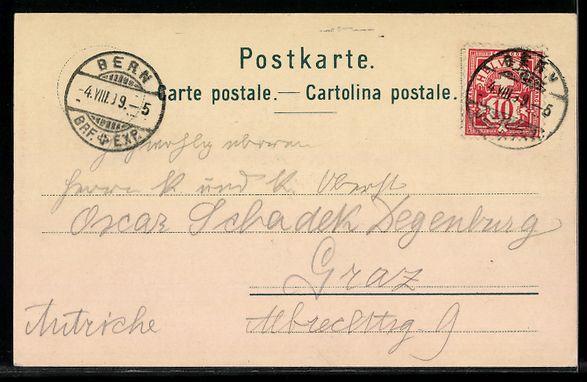 Postkarte.
Carte postale. — Cartolina postale.
BERN
-4.VIII.99.-5
BRF. EXP.
BERN
-4.VIII.99.-5
10
Herrn k und k. Oberst
Oscar Schadek Degenburg
Graz
Autriche
Albrechttsg 9